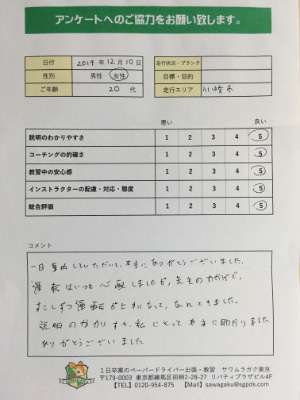 アンケートへのご協力をお願い致します。
日付 2019 年 12 月 10 日 走行状況・ブランク
性別 男性 女性 目標・目的
ご年齢 20 代 走行エリア 川崎市
悪い 良い
説明のわかりやすさ 1 2 3 4 5
コーチングの的確さ 1 2 3 4 5
教習中の安心感 1 2 3 4 5
インストラクターの配慮・対応・態度 1 2 3 4 5
総合評価 1 2 3 4 5
コメント
一日 していただいて、本当にありがとうございました。
運転はいつも心配しましたが、先生のおかげで、
すこしずつ運転が上手になって、
説明の分かりすさ、私にとって本当に助かりました
ありがとうございました
1日卒業のペーパードライバー出張・教習 サワムラガク東京
〒179-0003 東京都練馬区田柄2-28-27 リバティプラザビル4F
【TEL】0120-954-875 【Mail】sawagaku@sgpds.com